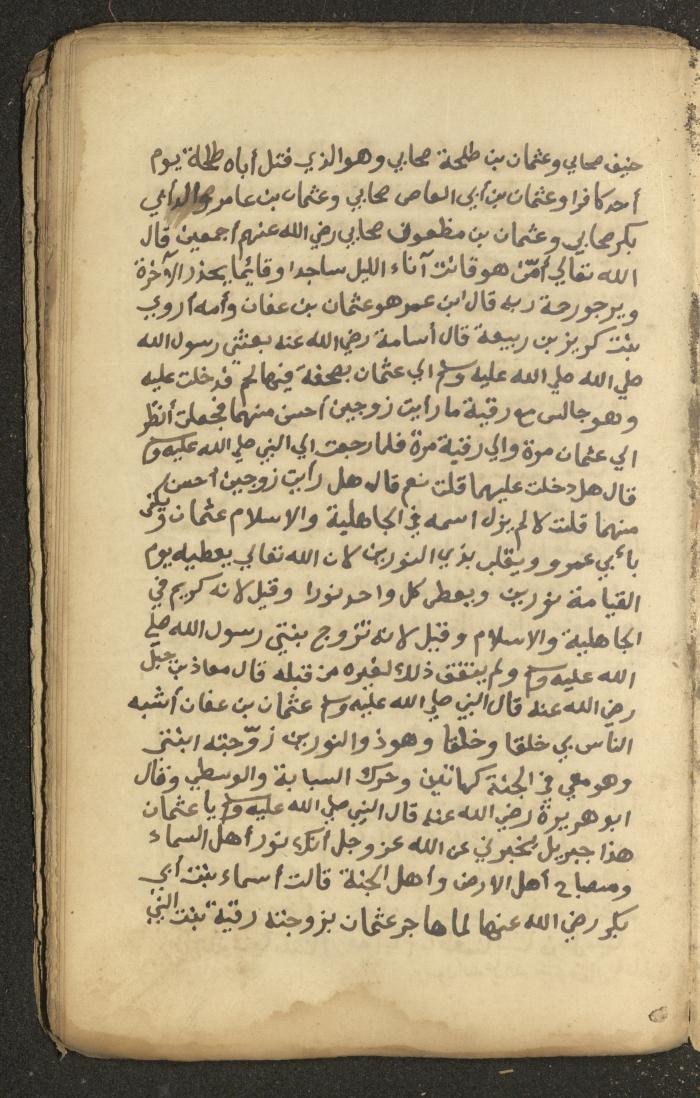 حنيف صحابي وعثمان بن طلحة صحابي وهو الذي قتل أباه طلحة يوم
أحد كافرا وعثمان بن أبي العاص صحابي وعثمان بن عامر والد أبي
بكر صحابي وعثمان بن مظعون صحابي رضي الله عنهم أجمعين قال
الله تعالي أمّن هو قانت آناء الليل ساجدا وقائما يحذر الآخرة
ويرجو رحمة ربه قال ابن عمر هو عثمان بن عفان وأمه أروي
بنت كريز بن ربيعة قال أسامة رضي الله عنه بعثني رسول الله
صلي الله عليه وسلم الي عثمان بصحفة فيها لحم فدخلت عليه
وهو جالس مع رقية ما رأيت زوجين أحسن منهما فجعلت أنظر
الي عثمان مرة والي رقية مرة فلما رجعت الي النبي صلي الله عليه و
قال هل دخلت عليهما قلت نعم قال هل رأيت زوجين أحسن
منهما قلت لا لم يزل اسمه في الجاهلية والاسلام عثمان ويكنى
بأبي عمرو ويلقب بذي النورين لان الله تعالي يعطيه يوم
القيامة نورين ويعطي كل واحد نورا وقيل لانه كريم في
الجاهلية والاسلام وقيل لانه تزوج بنتي رسول الله صلي
الله عليه وسلم ولم يتفق ذلك لغيره من قبله قال معاذ بن جبل
رضي الله عنه قال النبي صلي الله عليه وسلم عثمان بن عفان أشبه
الناس بي خلقا وخلقا وهو ذو النورين زوّجته ابنتي
وهو معي في الجنة كهاتين وحرك السبابة والوسطي وقال
ابو هريرة رضي الله عنه قال النبي صلي الله عليه وسلم يا عثمان
هذا جبريل يخبرني عن الله عز وجل أنك نور أهل السماء
ومصباح أهل الارض وأهل الجنة قالت أسماء بنت أبي
بكر رضي الله عنها لما هاجر عثمان بزوجته رقية بنت النبي